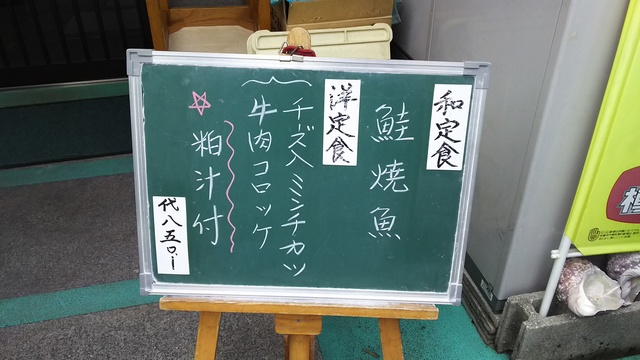 和定食
鮭焼魚
洋定食
チーズ入ミンチカツ
牛肉コロッケ
粕汁付
代八五〇.ー